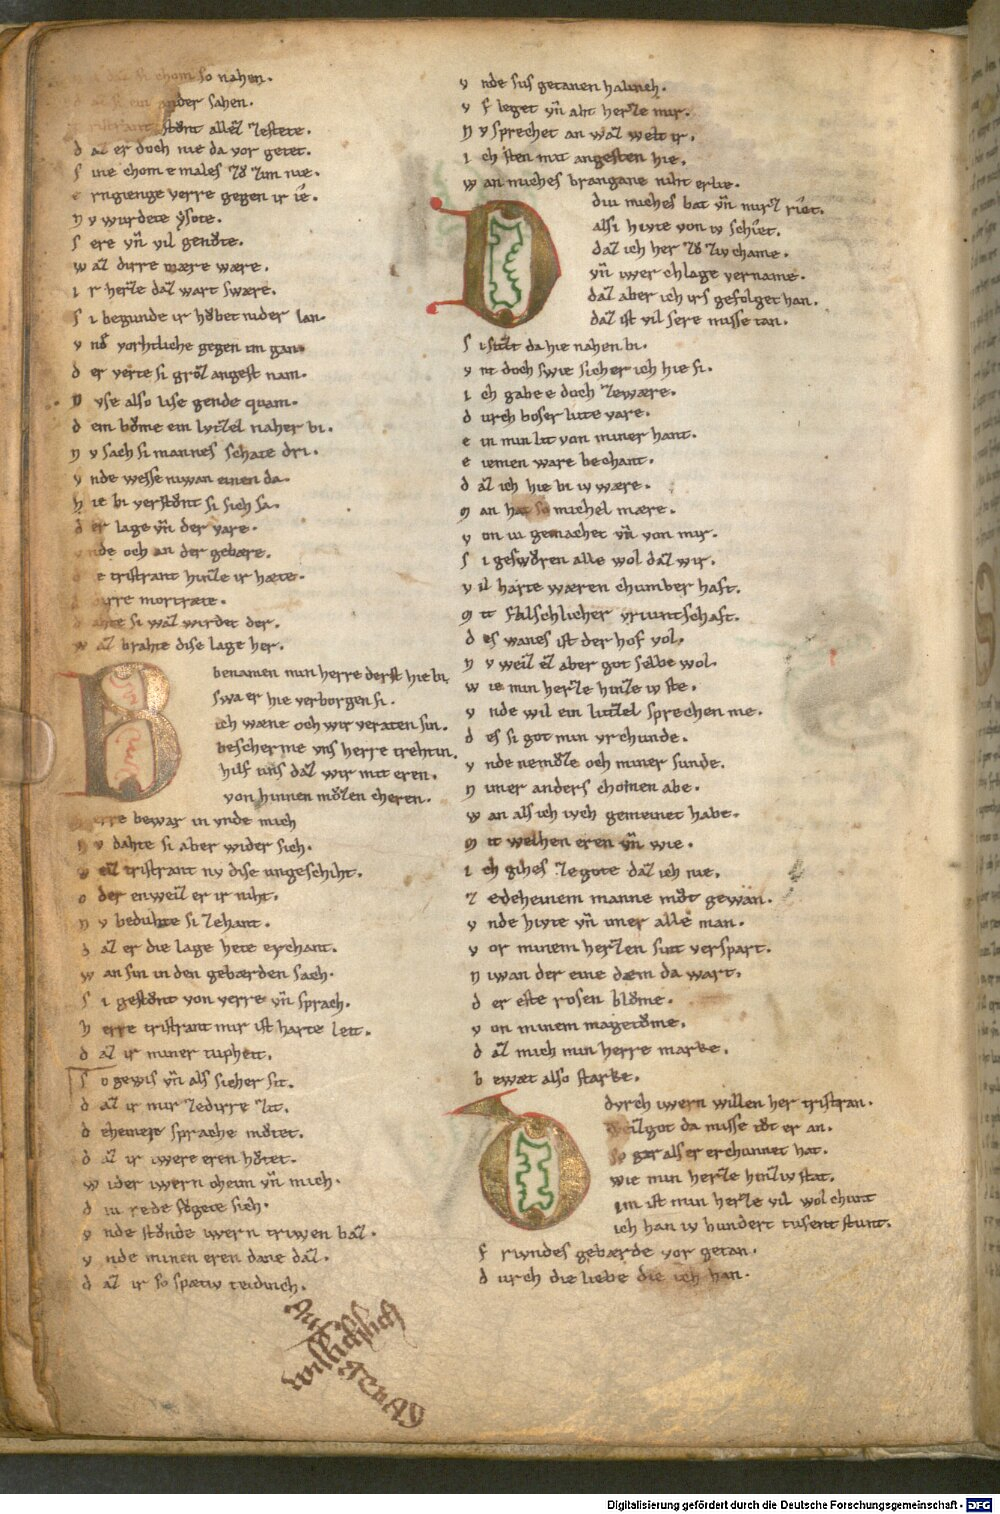 daz si chom so nahen.
ander sahen.
Tristrant stoͮnt allez zestete.
d az er doch nie da vor getet.
s wie chom e males zoͮ zim nie.
e rn gienge verre gegen ir ie.
n v wurdete ysote.
s ere vn̄ vil genoͮte.
w az dirre mære wære.
i r herze daz wart swære.
s i begunde ir hoͮbet nider lan.
v nd vorhtliche gegen im gan.
d er verte si groz angest nam.
n v se also lise gende quam.
d em boͮme ein lvtzel naher bi.
n v sach si mannes schate dri.
v nde wesse niwan einen da.
h ie bi verstoͮnt si sich sa.
d er lage vn̄ der vare.
v nde och an der gebære.
e tristrant hinze ir hæte.
mortræte.
d ahte si waz wirdet der.
w az brahte dise lage her.
B benamen min herre derst hie bi.
swa er hie verborgen si.
ich wæne och wir veraten sin.
bescherme vns herre trehtin.
hilf uns daz wir mit eren.
von hinnen moͮzen cheren.
h erre bewar in vnde mich
n v dahte si aber wider sich.
w eiz tristrant nv dise ungeschiht.
o der enweiz er ir niht.
n v beduhte si zehant.
d az er die lage hete erchant.
w an sin in den gebærden sach.
s i gestoͮnt von verre vn̄ sprach.
h erre tristrant mir ist harte leit.
d az ir miner tupheit.
s o gewis vn̄ als sicher sit.
d az ir mir zedirre zit.
d eheiner sprache moͮtet.
d az ir iwere eren hoͮtet.
w ider iwern oheim vn̄ mich.
d iu rede foͮgete sich.
v nde stoͮnde iwern triwen baz.
v nde minen eren dane daz.
d az ir so spætiv teidinch.
v nde sus getanen halinch.
v f leget vn̄ aht herze mir.
n v sprechet an waz welt ir.
i ch sten mit angesten hie.
w an miches brangane niht erlie.
D diu miches bat vn̄ mirz riet.
alsi hivte von iv schiet.
daz ich her zoͮ ziv chame.
vn̄ iwer chlage vername.
daz aber ich irs gefolget han.
daz ist vil sere missetan.
s i sizzt da hie nahen bi.
v nt doch swie sicher ich hie si.
i ch gabe e doch zewære.
d urch boser liute vare.
e in min lit von miner hant.
e iemen ware bechant.
d az ich hie bi iv wære.
m an hat so michel mære.
v on iu gemachet vn̄ von mir.
s i geswoͮren alle wol daz wir.
v il harte wæren chumber haft.
m it falschlicher vriuntschaft.
d es wanes ist der hof vol.
n v weiz ez aber got selbe wol.
w ie min herze hinze iv ste.
v nde wil ein luzzel sprechen me.
d es si got min vrchunde.
v nde nemoͮze och miner sunde.
n imer anders chomen abe.
w an als ich ivch gemeinet habe.
m it welhen eren vn̄ wie.
i ch gihes zegote daz ich nie.
z edeheinem manne moͮt gewan.
v nde hivte vn̄ imer alle man.
v or minem herzen sint verspart.
n iwan der eine dæm da wart.
d er erste rosen bloͮme.
v on minem magetoͮme.
d az mich min herre marke.
b ewæt also starke.
D dvrch iwern willen her tristran.
weizgot da misse toͮt er an.
so gar als er erchunnet hat.
wie min herze hinziv stat.
im ist min herze vil wol chunt
ich han iv hundert tusent stunt.
f rivndes gebærde vor getan.
d urch die liebe die ich han.
Digitalisierung gefördert durch die Deutsche Forschungsgemeinschaft - DFG